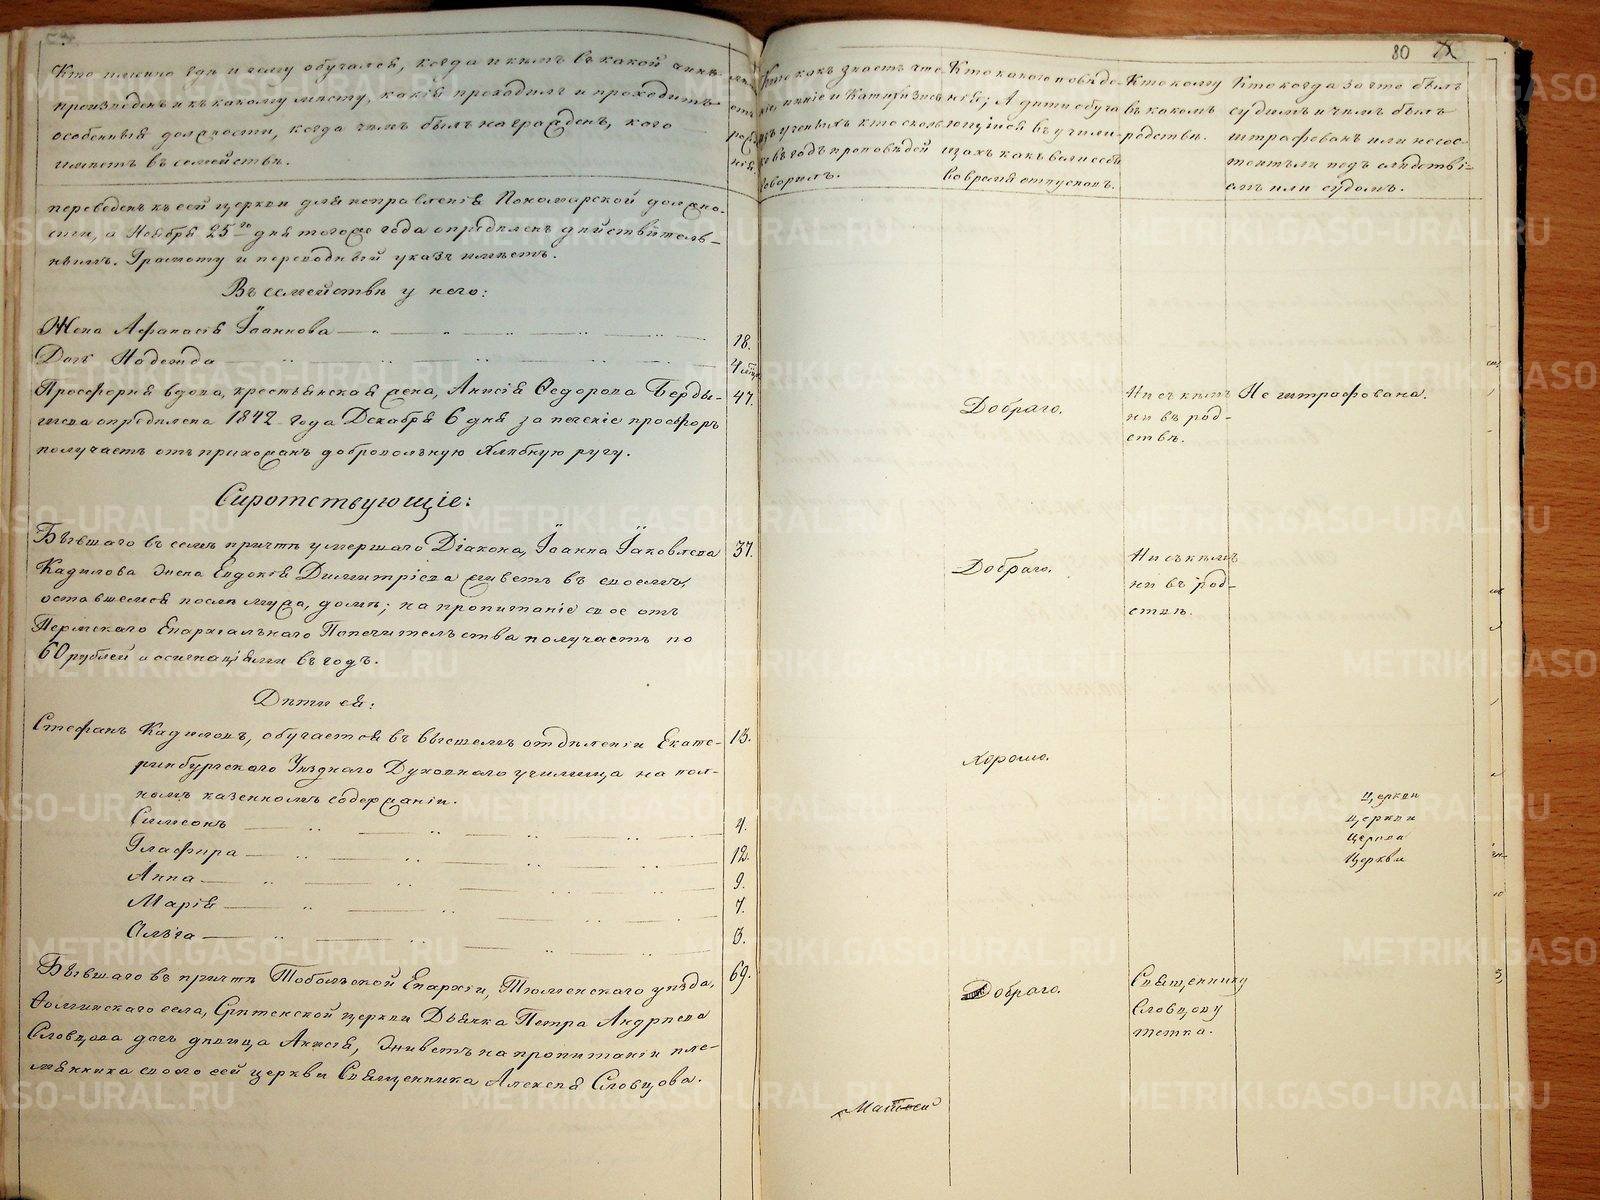 80
Кто именно гдѣ и чему обучался, когда и кѣмъ въ какой чинъ
произведенъ и къ какому мѣсту, какія проходилъ и проходитъ
особенныя должности, когда чѣмъ былъ награжденъ, кого
имѣетъ въ семействѣ.
Кто какъ знаетъ чте
ніе, пѣніе и Катихизисъ
изъ ученыхъ кто сколь
ко въ годъ проповѣдей
говорилъ.
Кто какого поведе
нія; А дѣти обуча
ющіяся въ учили
щахъ какъ вели себя
во время отпусковъ.
Кто кому
въ какомъ
родствѣ.
Кто когда за что былъ
судимъ и чѣмъ былъ
штрафованъ или не сос
тоитъ ли подъ слѣдстві
емъ или судомъ.
переведенъ къ сей церкви для исправленія Пономарской должно-
сти, а Ноября 25го дня того же года опредѣленъ дѣйствитель-
нымъ. Грамоту и переводный указъ имѣетъ.
Въ семействѣ у него:
Жена Афанасія Іоаннова 18.
Дочь Надежда 4 мѣс.
Просфорня вдова, крестьянская жена, Анисія Ѳедорова Берды- 47.
шева опредѣлена 1842 года Декабря 6 дня за печеніе просфоръ
получаетъ отъ прихожанъ добровольную хлѣбную ругу.
Добраго.
Ни съ кѣмъ
ни въ род-
ствѣ.
Не штрафована.
Сиротствующіе:
Бывшаго въ семъ причтѣ умершаго Діакона, Іоанна Іаковлева 37.
Кадилова жена Евдокія Димитріева живетъ въ своемъ,
оставшемся послѣ мужа, домѣ; на пропитаніе свое отъ
Пермскаго Епархіальнаго Попечительства получаетъ по
60 рублей ассигнаціями въ годъ.
Добраго.
Ни съ кѣмъ
ни въ род-
ствѣ.
Дѣти ея:
Стефанъ Кадиловъ, обучается въ высшемъ отдѣленіи Екате- 15.
ринбургскаго Уѣзднаго Духовнаго училища на пол-
номъ казенномъ содержаніи.
Хорошо.
Симеонъ 4.
Глафира 12.
Анна 9.
Марія 7.
Ольга 3.
Церкви
Церкви
Церкви
Церкви
Бывшаго въ причтѣ Тобольской Епархіи, Тюменскаго уѣзда, 69.
села, Срѣтенской церкви Дьячка Петра Андреева
Словцова дочь дѣвица Анисія, живетъ на пропитаніи пле-
мянника своего сей церкви Священника Алексѣя Словцова.
Добраго.
Священнику
Словцову
тетка.
METRIKI.GASO-URAL.RU